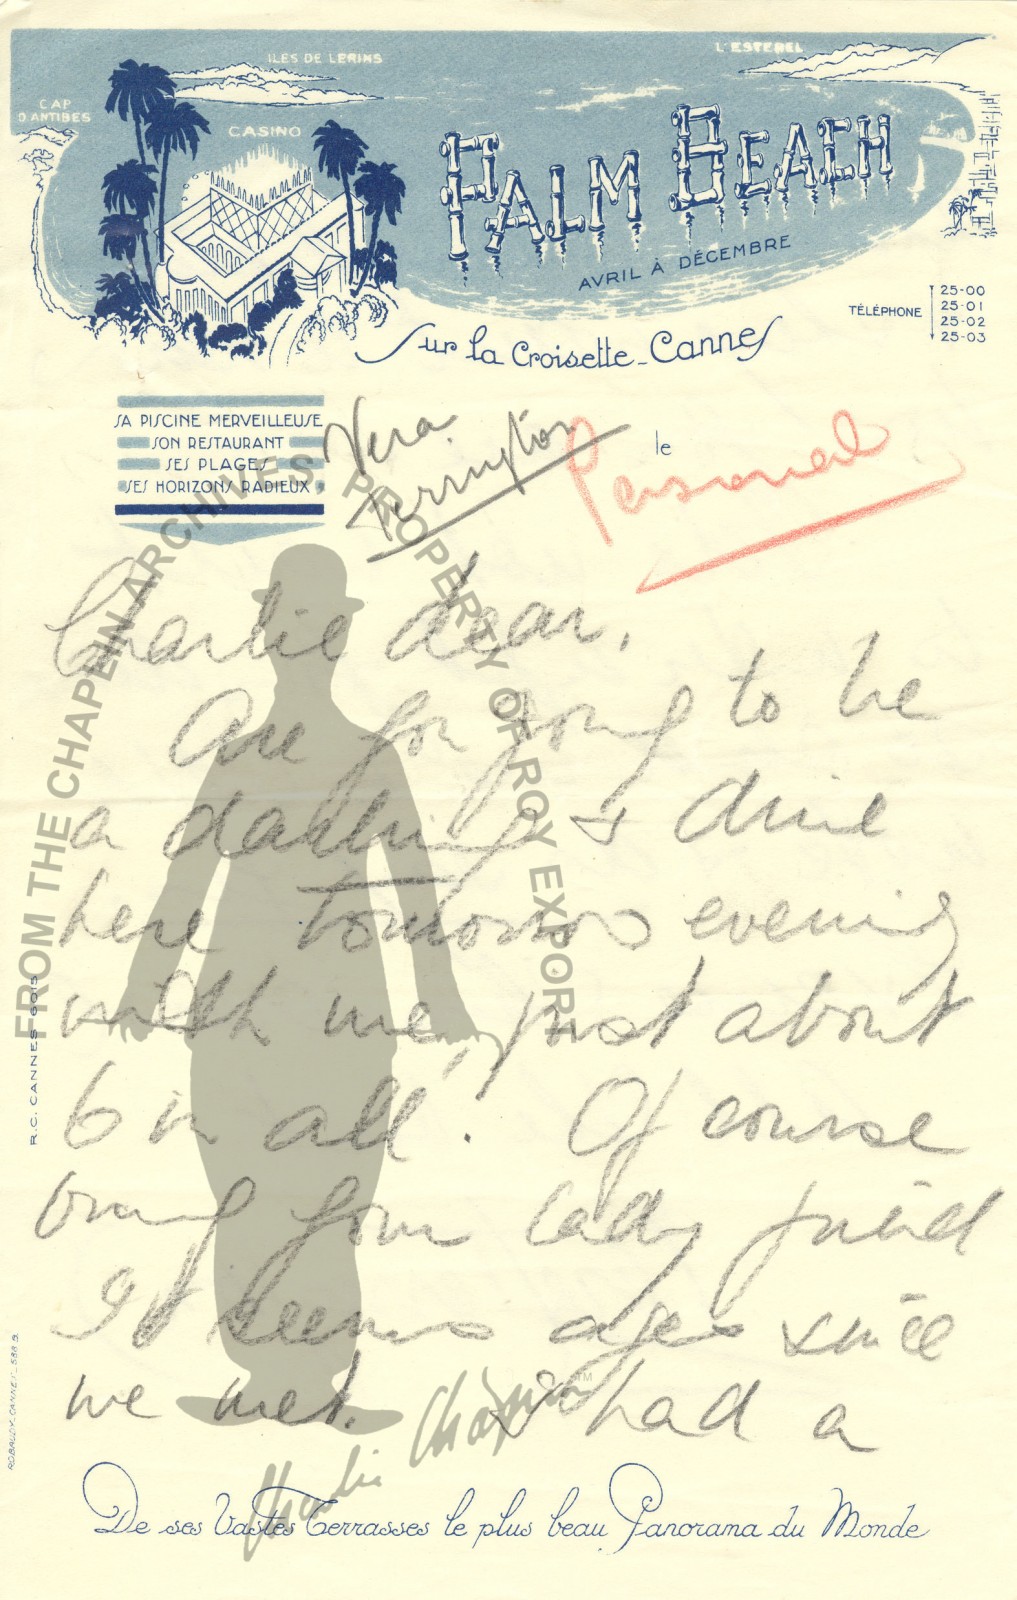 ILES DE LERINS
L'ESTEREL
CAP
D'ANTIBES
CASINO
PALM BEACH
AVRIL À DÉCEMBRE
TÉLÉPHONE
25-00
25-01
25-02
25-03
Sur la Croisette - Cannes
SA PISCINE MERVEILLEUSE
SON RESTAURANT
SES PLAGES
SES HORIZONS RADIEUX
Vera
le
Personal
FROM THE CHAPLIN ARCHIVES PROPERTY OF ROY EXPORT
Charlie dear,
Are you going to be
a darling & dine
here tomorrow evening
with me, just about
6 in all. Of course
bring your lady friend
It seems ages since
we met. I had a
R.C. CANNES 6015
ROBAUDY_CANNES_588.9
Charlie Chaplin
TM
De ses Vastes Terrasses le plus beau Panorama du Monde